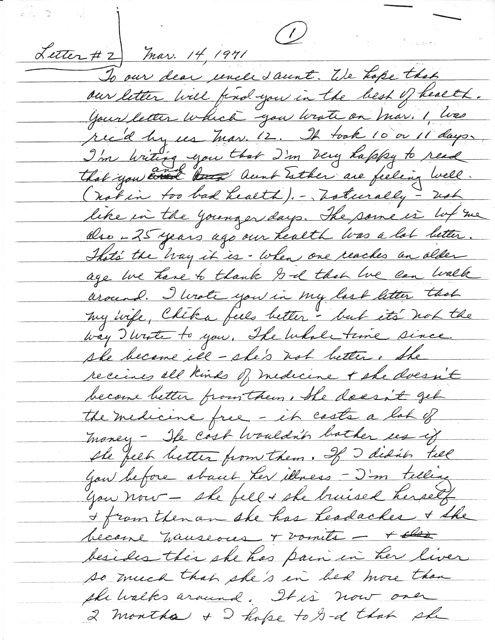 1
Letter #2 Mar. 14, 1971
To our dear uncle & aunt. We hope that
our letter will find you in the best of health.
Your letter which you wrote on Mar. 1, was
rec'd by us Mar. 12. It took 10 or 11 days.
I'm writing you that I'm very happy to read
that you and Aunt Esther are feeling well.
(not in too bad health). - Naturally - not
like in the younger days. The same is w/ me
also - 25 years ago our health was a lot better.
That's the way it is - when one reaches an older
age we have to thank G-d that we can walk
around. I wrote you in my last letter that
my wife, Chika feels better - but it's not the
way I wrote to you. The whole time since
she became ill - she's not better. She
receives all kinds of medicine & she doesn't
become better from them. She doesn't get
the medicine free - it costs a lot of
money - The cost wouldn't bother us if
she felt better from them. If I didn't tell
you before about her illness - I'm telling
you now - she fell & she bruised herself
& from then on she has headaches & she
became nauseous & vomits - & also
besides this she has pain in her liver
so much that she's in bed more than
she walks around. It is now over
2 months & I hope to G-d that she